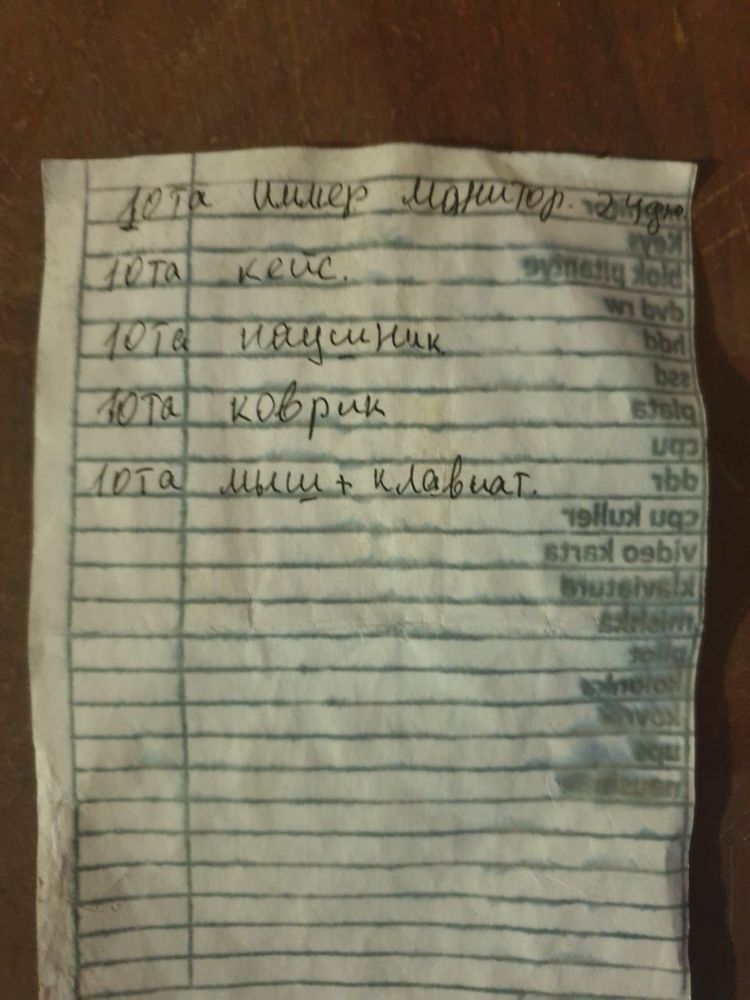 10та иммер монитор. 24дю.
10та кейс.
10та наушник
10та коврик
10та мыш + клавиат.
keys
blok pitaniye
dvd rw
hdd
ssd
plata
cpu
ddr
cpu kuller
video karta
klaviatura
mishka
pilot
kolonka
kovrik
ups